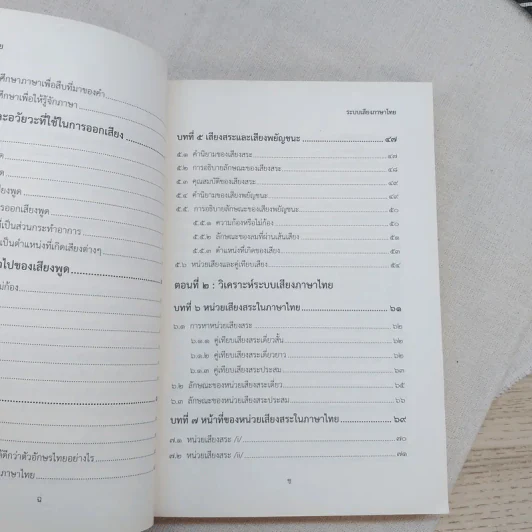 ศึกษาภาษาเพื่อสืบที่มาของคำ
ศึกษาเพื่อให้รู้จักภาษา
ละอวัยวะที่ใช้ในการออกเสียง
สียงพูด
รออกเสียงพูด
ที่เป็นส่วนกระทำอาการ
เป็นตำแหน่งที่เกิดเสียงต่างๆ
วไปของเสียงพูด
ได้ดีกว่าตัวอักษรไทยอย่างไร
ภาษาไทย
ฉ
ระบบเสียงภาษาไทย
บทที่ ๕ เสียงสระและเสียงพยัญชนะ ๔๗
๕.๑ คำนิยามของเสียงสระ ๔๗
๕.๒ การอธิบายลักษณะของเสียงสระ ๔๘
๕.๓ คุณสมบัติของเสียงสระ ๔๙
๕.๔ คำนิยามของเสียงพยัญชนะ ๔๙
๕.๕ การอธิบายลักษณะของเสียงพยัญชนะ ๕๐
๕.๕.๑ ความก้องหรือไม่ก้อง ๕๐
๕.๕.๒ ลักษณะของลมที่ผ่านเส้นเสียง ๕๑
๕.๕.๓ ตำแหน่งที่เกิดของเสียง ๕๒
๕.๖ หน่วยเสียงและคู่เทียบเสียง ๕๔
ตอนที่ ๒ : วิเคราะห์ระบบเสียงภาษาไทย
บทที่ ๖ หน่วยเสียงสระในภาษาไทย ๖๑
๖.๑ การหาหน่วยเสียงสระ ๖๒
๖.๑.๑ คู่เทียบเสียงสระเดี่ยวสั้น ๖๒
๖.๑.๒ คู่เทียบเสียงสระเดี่ยวยาว ๖๒
๖.๑.๓ คู่เทียบเสียงสระประสม ๖๓
๖.๒ ลักษณะของหน่วยเสียงสระเดี่ยว ๖๕
๖.๓ ลักษณะของหน่วยเสียงสระประสม ๖๖
บทที่ ๗ หน้าที่ของหน่วยเสียงสระในภาษาไทย ๖๙
๗.๑ หน่วยเสียงสระ /i/ ๗๐
๗.๒ หน่วยเสียงสระ /ii/ ๗๑
ช